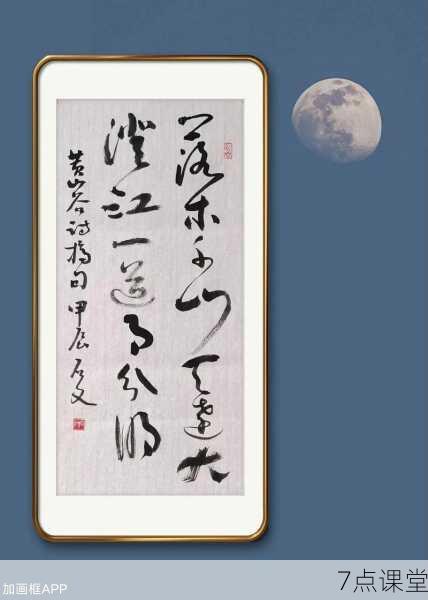 落木千山天远大
澄江一道月分明
黄山谷诗摘句 甲辰 石文
加画框APP
7点课堂